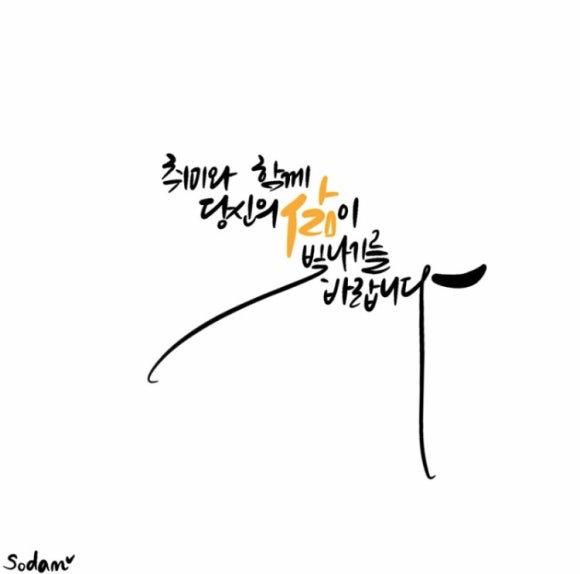 취미와 함께
당신의 삶이
빛나기를
바랍니다
Sodam